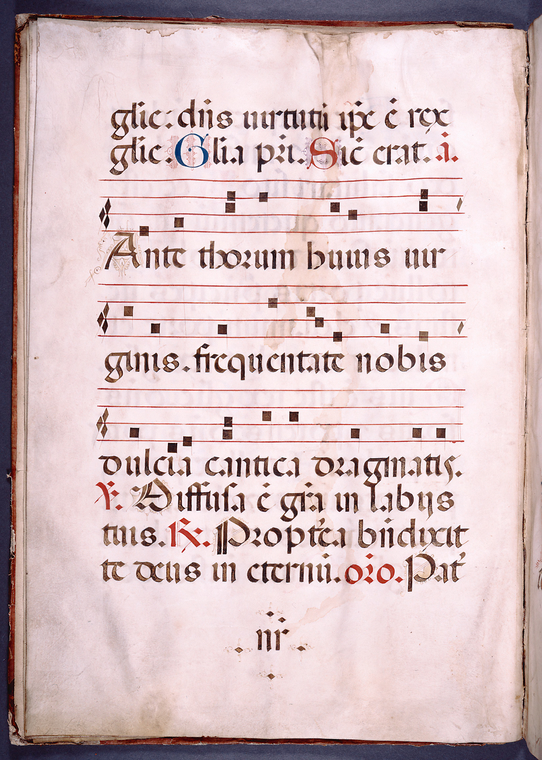 glie: dñs uirtutũ ip̃e ẽ rex
glie. Glia pri. Sic̃ erat. a.
Ante thorum huius uir
ginis. frequentate nobis
dulcia cantica dragmatis.
℣. Diffusa ẽ gr̃a in labijs
tuis. ℞. Propter̃a bñdixit
te deus in eternũ. oro. Pat̃
nr̃